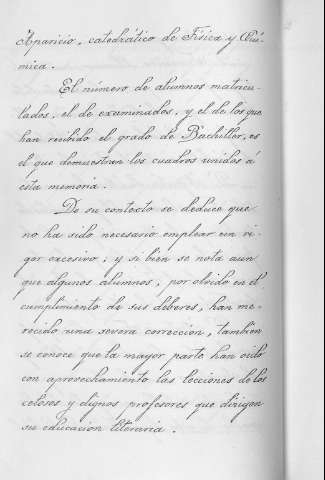 Aparicio, catedrático de Física y Quí-
mica.
El número de alumnos matricu-
lados, el de examinados, y el de los que
han recibido el grado de Bachiller, es
el que demuestran los cuadros unidos á
esta memoria.
De su contexto se deduce que
no ha sido necesario emplear un vi-
gor excesivo; y si bien se nota aun
que algunos alumnos, por olvido en el
cumplimiento de sus deberes, han me-
recido una severa corrección, tambien
se conoce que la mayor parte han oido
con aprovechamiento las lecciones de los
celosos y dignos profesores que dirigen
su educacion literaria.